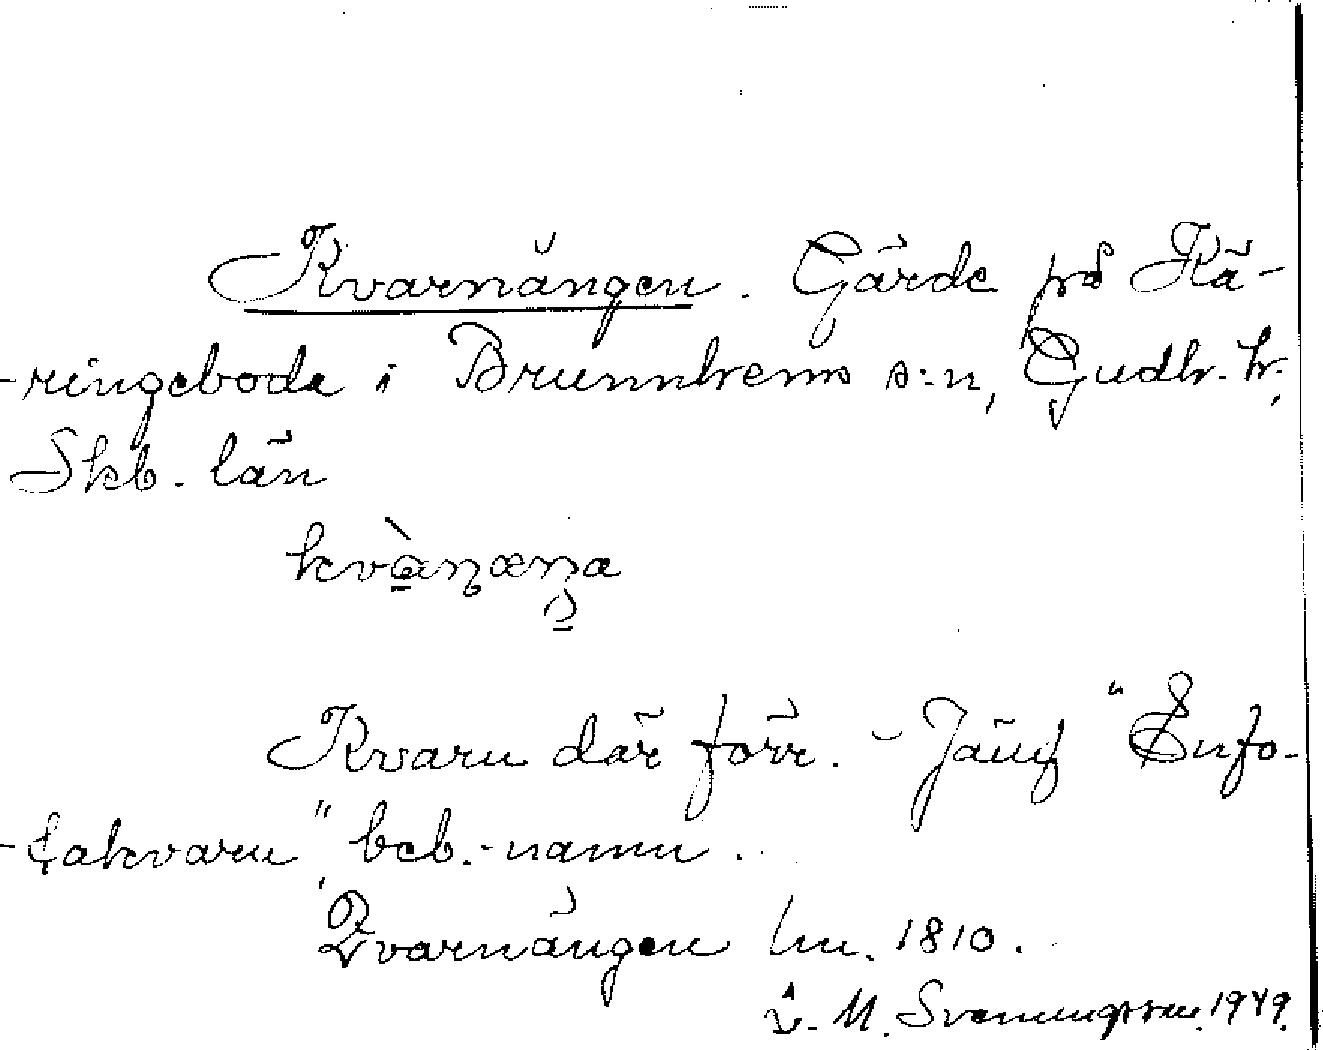 Kvarnängen. Gärde på Kä-
-ringeboda i Brunnhems s:n, Gudh. hr.,
Skb. län
Kvarn där förr. - Jämf "Enfo-
-takvarn" beb.-namn.
Qvarnängen hn. 1810.
M. Svenungsson. 1949.